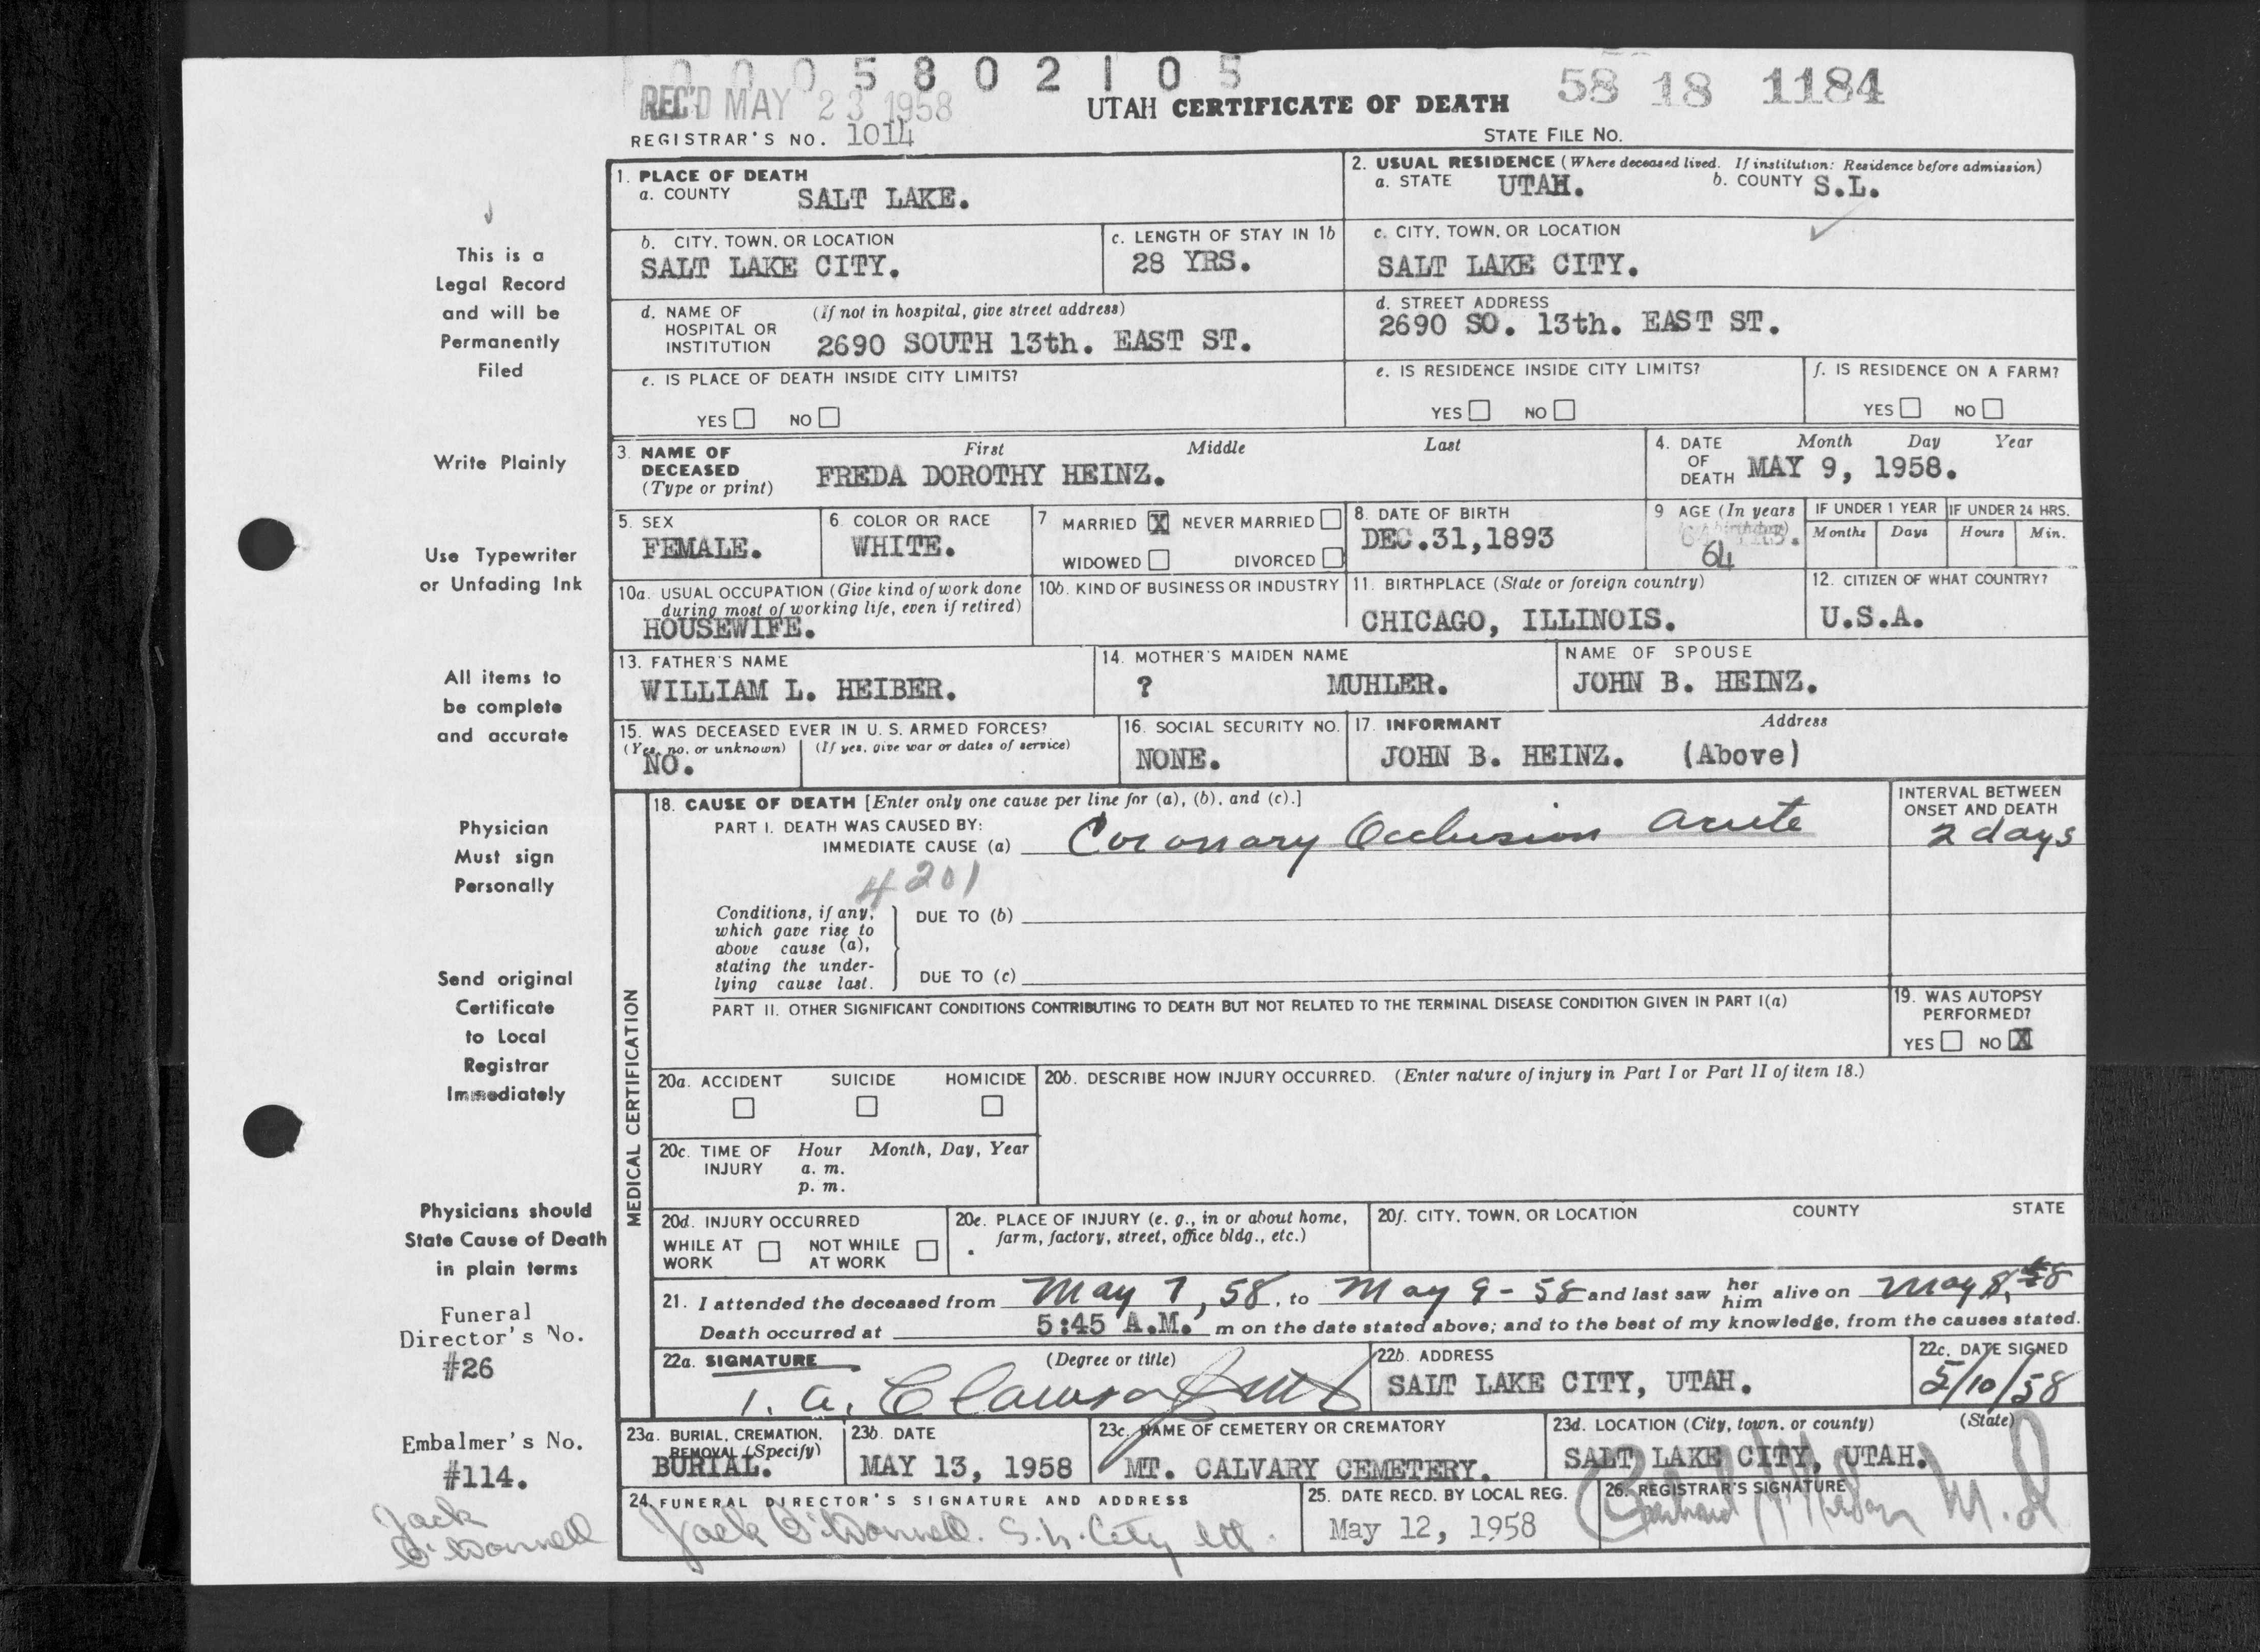 0 0 0 5 8 0 2 1 0 5
REC'D MAY 23 1958
UTAH CERTIFICATE OF DEATH
58 18 1184
REGISTRAR'S NO. 1014
STATE FILE NO.
This is a
Legal Record
and will be
Permanently
Filed
Write Plainly
Use Typewriter
or Unfading Ink
All items to
be complete
and accurate
Physician
Must sign
Personally
Send original
Certificate
to Local
Registrar
Immediately
Physicians should
State Cause of Death
in plain terms
Funeral
Director's No.
#26
Embalmer's No.
#114.
Jack
O'Donnell
1. PLACE OF DEATH
a. COUNTY SALT LAKE.
2. USUAL RESIDENCE (Where deceased lived. If institution: Residence before admission)
a. STATE UTAH. b. COUNTY S.L.
b. CITY, TOWN, OR LOCATION
SALT LAKE CITY.
c. LENGTH OF STAY IN 1b
28 YRS.
c. CITY, TOWN, OR LOCATION
SALT LAKE CITY.
d. NAME OF HOSPITAL OR INSTITUTION (If not in hospital, give street address)
2690 SOUTH 13th. EAST ST.
d. STREET ADDRESS
2690 SO. 13th. EAST ST.
e. IS PLACE OF DEATH INSIDE CITY LIMITS?
YES NO
e. IS RESIDENCE INSIDE CITY LIMITS?
YES NO
f. IS RESIDENCE ON A FARM?
YES NO
3. NAME OF DECEASED (Type or print) First Middle Last
FREDA DOROTHY HEINZ.
4. DATE OF DEATH Month Day Year
MAY 9, 1958.
5. SEX
FEMALE.
6. COLOR OR RACE
WHITE.
7 MARRIED X NEVER MARRIED
WIDOWED DIVORCED
8. DATE OF BIRTH
DEC.31,1893
9 AGE (In years
64
IF UNDER 1 YEAR
Months Days
IF UNDER 24 HRS.
Hours Min.
10a. USUAL OCCUPATION (Give kind of work done during most of working life, even if retired)
HOUSEWIFE.
10b. KIND OF BUSINESS OR INDUSTRY
11. BIRTHPLACE (State or foreign country)
CHICAGO, ILLINOIS.
12. CITIZEN OF WHAT COUNTRY?
U.S.A.
13. FATHER'S NAME
WILLIAM L. HEIBER.
14. MOTHER'S MAIDEN NAME
? MUHLER.
NAME OF SPOUSE
JOHN B. HEINZ.
15. WAS DECEASED EVER IN U. S. ARMED FORCES?
(Yes, no, or unknown) (If yes, give war or dates of service)
NO.
16. SOCIAL SECURITY NO.
NONE.
17. INFORMANT Address
JOHN B. HEINZ. (Above)
MEDICAL CERTIFICATION
18. CAUSE OF DEATH [Enter only one cause per line for (a), (b), and (c).]
PART I. DEATH WAS CAUSED BY:
IMMEDIATE CAUSE (a) Coronary Occlusion acute
INTERVAL BETWEEN ONSET AND DEATH
2 days
4201
Conditions, if any, which gave rise to above cause (a), stating the underlying cause last.
DUE TO (b)
DUE TO (c)
PART II. OTHER SIGNIFICANT CONDITIONS CONTRIBUTING TO DEATH BUT NOT RELATED TO THE TERMINAL DISEASE CONDITION GIVEN IN PART I(a)
19. WAS AUTOPSY PERFORMED?
YES NO X
20a. ACCIDENT SUICIDE HOMICIDE
20b. DESCRIBE HOW INJURY OCCURRED. (Enter nature of injury in Part I or Part II of item 18.)
20c. TIME OF INJURY Hour Month, Day, Year
a. m.
p. m.
20d. INJURY OCCURRED
WHILE AT WORK NOT WHILE AT WORK
20e. PLACE OF INJURY (e. g., in or about home, farm, factory, street, office bldg., etc.)
20f. CITY, TOWN, OR LOCATION COUNTY STATE
21. I attended the deceased from May 7, 58, to May 9 - 58 and last saw her him alive on May 8, 58
Death occurred at 5:45 A.M. m on the date stated above; and to the best of my knowledge, from the causes stated.
22a. SIGNATURE (Degree or title)
22b. ADDRESS
SALT LAKE CITY, UTAH.
22c. DATE SIGNED
5/10/58
23a. BURIAL, CREMATION, REMOVAL (Specify)
BURIAL.
23b. DATE
MAY 13, 1958
23c. NAME OF CEMETERY OR CREMATORY
MT. CALVARY CEMETERY.
23d. LOCATION (City, town, or county) (State)
SALT LAKE CITY, UTAH.
24. FUNERAL DIRECTOR'S SIGNATURE AND ADDRESS
Jack O'Donnell. S.L. City Ut.
25. DATE RECD. BY LOCAL REG.
May 12, 1958
26. REGISTRAR'S SIGNATURE